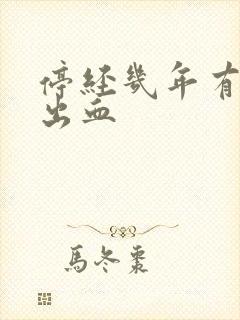 停経幾年有
出血
馬冬棗